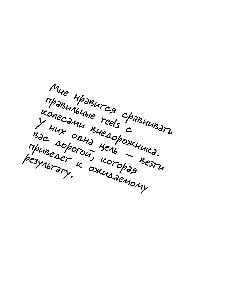 Мне нравится сравнивать
правильные reels с
колесами внедорожника.
У них одна цель — везти
вас дорогой, которая
приведет к ожидаемому
результату.